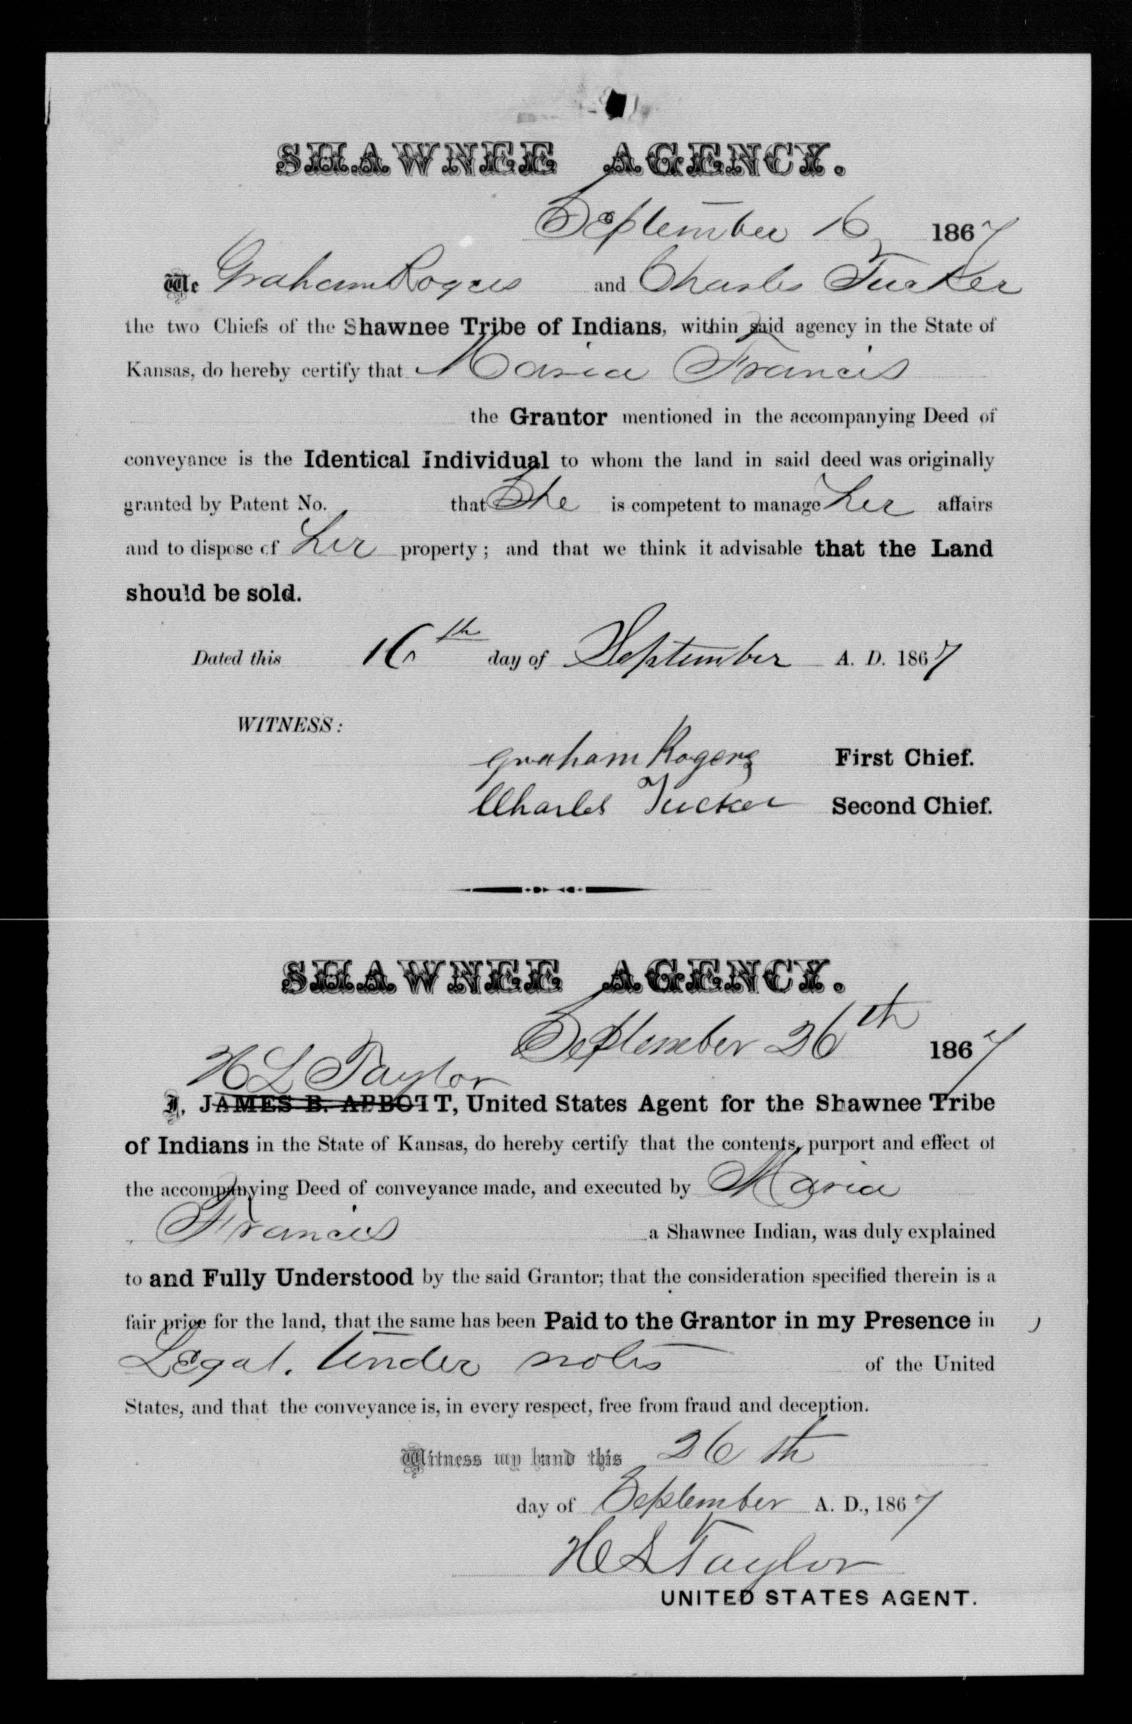 SHAWNEE AGENCY.
September 16 1867
We Graham Rogers and Charles Tucker
the two Chiefs of the Shawnee Tribe of Indians, within said agency in the State of
Kansas, do hereby certify that Maria Francis
the Grantor mentioned in the accompanying Deed of
conveyance is the Identical Individual to whom the land in said deed was originally
granted by Patent No. that She is competent to manage her affairs
and to dispose of her property; and that we think it advisable that the Land
should be sold.
Dated this 16th day of September A. D. 1867
WITNESS:
Graham Rogers First Chief.
Charles Tucker Second Chief.
SHAWNEE AGENCY.
September 26th 1867
H L Taylor
I, JAMES B. ABBOTT, United States Agent for the Shawnee Tribe
of Indians in the State of Kansas, do hereby certify that the contents, purport and effect of
the accompanying Deed of conveyance made, and executed by Maria
Francis a Shawnee Indian, was duly explained
to and Fully Understood by the said Grantor; that the consideration specified therein is a
fair price for the land, that the same has been Paid to the Grantor in my Presence in
Legal Tender notes of the United
States, and that the conveyance is, in every respect, free from fraud and deception.
Witness my hand this 26th
day of September A. D., 1867
H L Taylor
UNITED STATES AGENT.